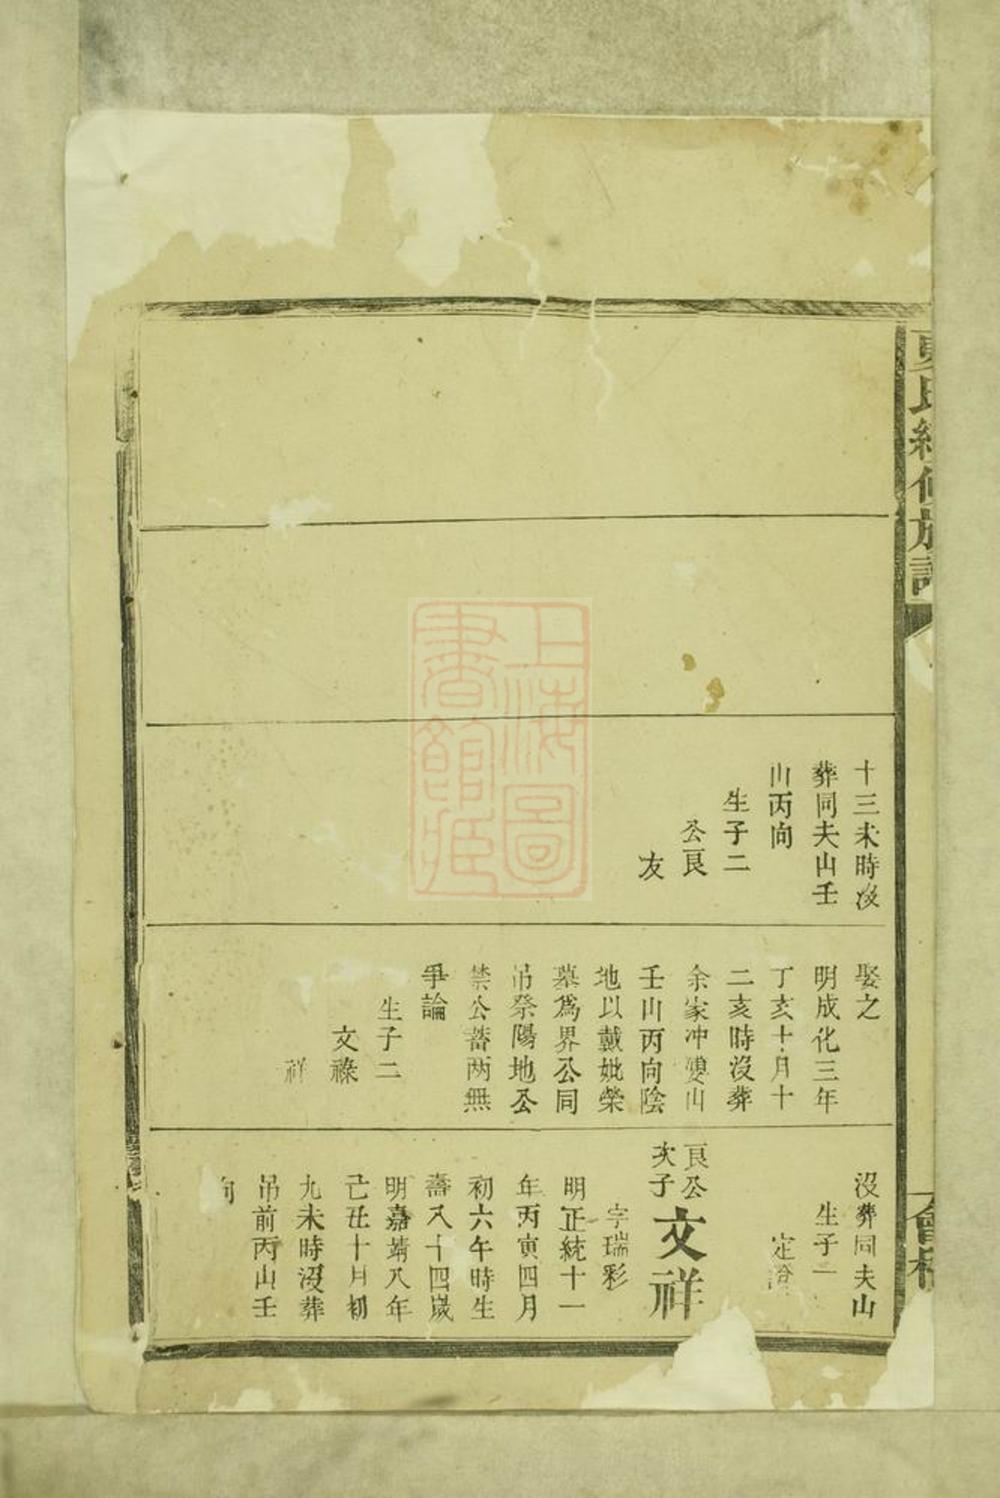 氏續修族譜
十三未時没
葬同夫山壬
山丙向
生子二
公良
友
娶之
明成化三年
丁亥十月十
二亥時沒葬
余家冲雙山
壬山丙向陰
地以戴妣榮
墓爲界公同
吊祭陽地公
禁公蓄两無
爭論
生子二
文祿
祥
沒葬同夫山
生子一
定
良公
次子
文祥
字瑞彩
明正統十一
年丙寅四月
初六午時生
壽八十四歲
明嘉靖八年
己丑十月初
九未時沒葬
吊前丙山壬
向
上海圖
書館藏